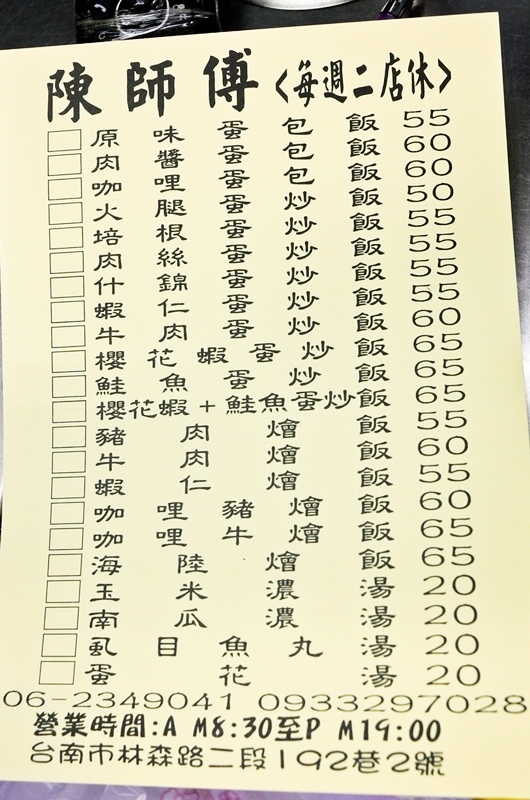 陳師傅<每週二店休>
原味蛋包飯 55
肉醬蛋包飯 60
咖哩蛋包飯 60
火腿蛋炒飯 50
培根蛋炒飯 55
肉絲蛋炒飯 55
什錦蛋炒飯 55
蝦仁蛋炒飯 55
牛肉蛋炒飯 60
櫻花蝦蛋炒飯 65
鮭魚蛋炒飯 65
櫻花蝦+鮭魚蛋炒飯 65
豬肉燴飯 55
牛肉燴飯 60
蝦仁燴飯 55
咖哩豬燴飯 60
咖哩牛燴飯 65
海陸燴飯 65
玉米濃湯 20
南瓜濃湯 20
虱目魚丸湯 20
蛋花湯 20
06-2349041 0933297028
營業時間:A M8:30至P M19:00
台南市林森路二段192巷2號